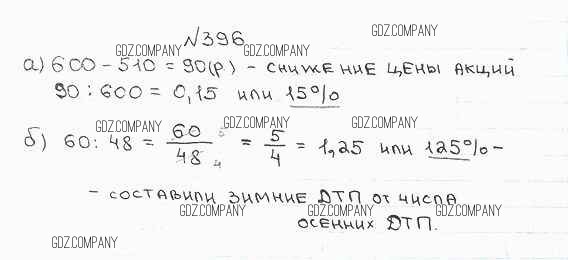 GDZ.COMPANY
№396
GDZ.COMPANY GDZ.COMPANY
а) 600 - 510 = 90(р) - снижение цены акций
90 : 600 = 0,15 или 15%
GDZ.COMPANY GDZ.COMPANY GDZ.COMPANY
б) 60 : 48 = 60/48 = 5/4 = 1,25 или 125% -
- составили зимние ДТП от числа
GDZ.COMPANY GDZ.COMPANY GDZ.COMPANY
осенних ДТП.
GDZ.COMPANY